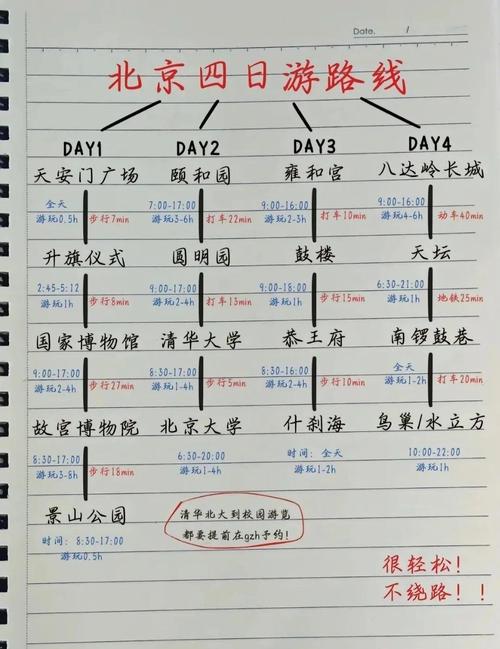 Date. /
北京四日游路线
DAY1 DAY2 DAY3 DAY4
天安门广场 颐和园 雍和宫 八达岭长城
全天 7:00-17:00 9:00-16:00 9:00-16:00
游玩0.5h 步行7min 游玩3-6h 打车22min 游玩2-3h 打车10min 游玩4-6h 动车40min
升旗仪式 圆明园 鼓楼 天坛
2:45-5:12 9:00-17:00 9:00-18:00 6:30-21:00
游玩1h 步行8min 游玩2-4h 打车13min 游玩1h 步行15min 游玩1h 地铁25min
国家博物馆 清华大学 恭王府 南锣鼓巷
9:00-17:00 8:30-17:00 8:30-16:00 全天
游玩2-4h 步行27min 游玩1-4h 步行5min 游玩2-4h 步行10min 游玩1-2h 打车20min
故宫博物院 北京大学 什刹海 鸟巢/水立方
8:30-17:00 6:30-20:00 时间：全天 10:00-22:00
游玩3-8h 步行18min 游玩1-4h 游玩1-2h 游玩1h
景山公园
时间：8:30-17:00
游玩0.5h
清华北大到校园游览
都要提前在gzh予约！
很轻松！
不绕路！！